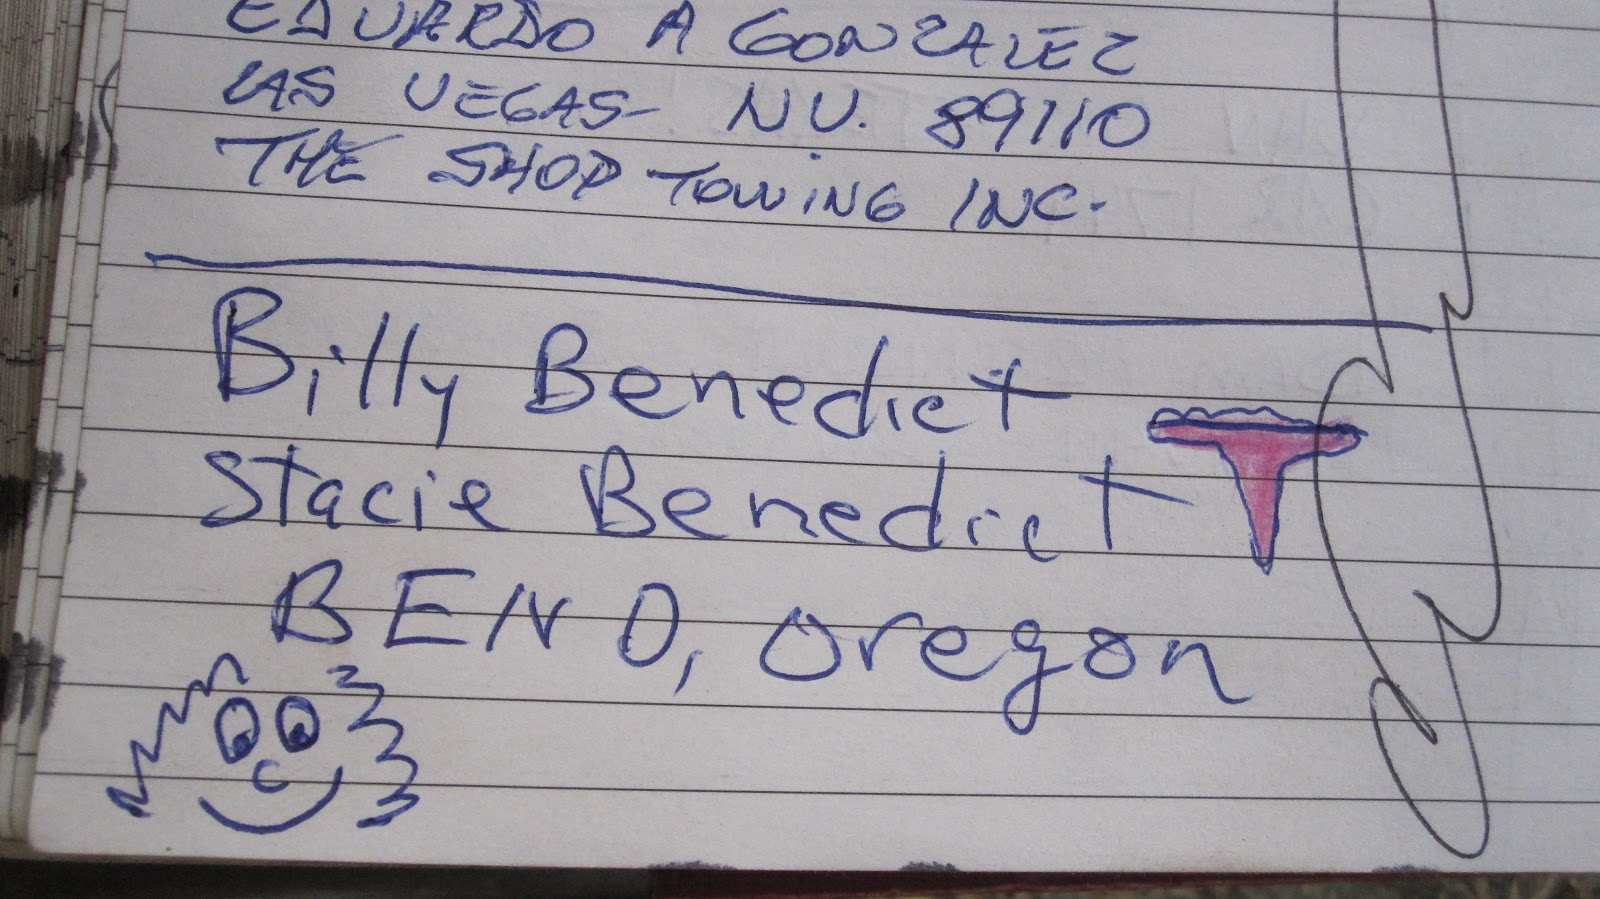 EDUARDO A GONZALEZ
LAS VEGAS- NV. 89110
THE SHOP TOWING INC.
Billy Benedict
Stacie Benedict
BEND, Oregon